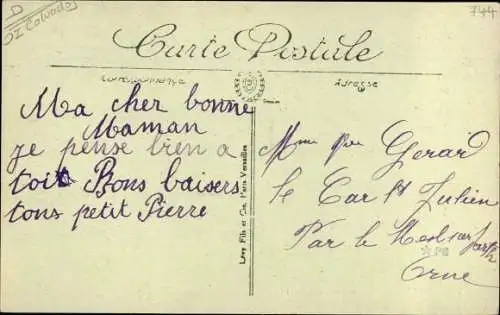 D
02 Calvados
744
Carte Postale
Correspondance
Adresse
Ma cher bonne
Maman
je pense bien a
toit Bons baisers
tons petit Pierre
Lévy Fils et Cie, Paris Versailles
Mme Gerard
le Car St Julien
Par le Mesl sar
Orne